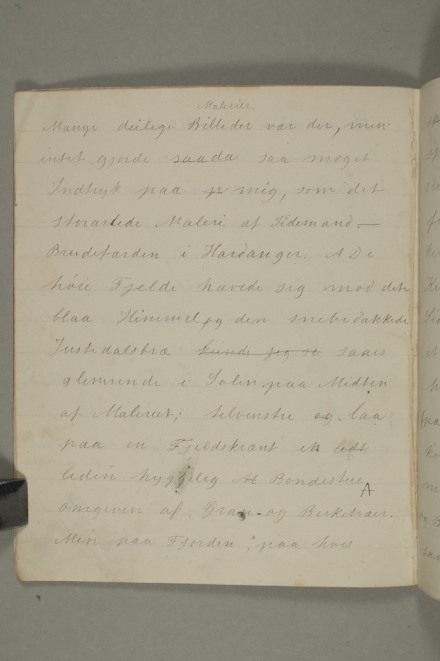 Malerier.
Mange deilige Billeder var der, men
intet gjorde saada saa meget
Indtryk paa mig, som det
storartede Maleri af Tidemand —
Brudefærden i Hardanger. De
höie Fjelde hævede sig mod den
blaa Himmel og den snebedækkede
Justedalsbræ kunde jeg se saaes
glimrende i Solen paa Midten
af Maleriet; tilvenstre og laa
paa en Fjeldskrænt en lidt
liden hyggelig Bondestue
omgiven af Gran- og Birketræer.
Men paa Fjorden, paa hvis